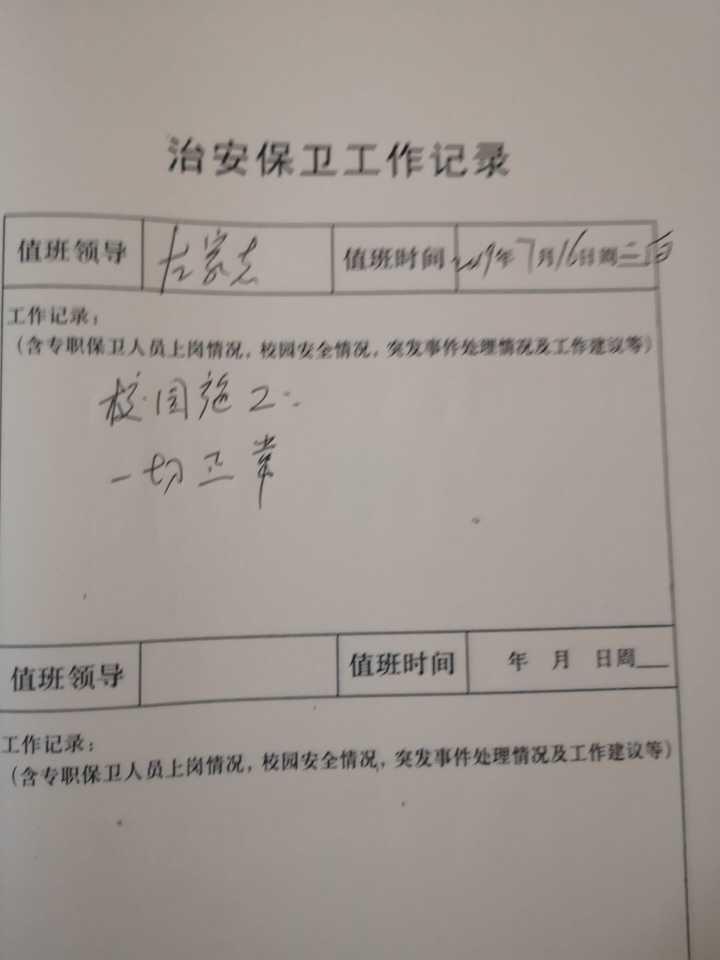 治安保卫工作记录
值班领导 左家志 值班时间 2019年7月16日周二
工作记录：
（含专职保卫人员上岗情况，校园安全情况，突发事件处理情况及工作建议等）
校园施工.
一切正常
值班领导 值班时间 年 月 日周___
工作记录：
（含专职保卫人员上岗情况，校园安全情况，突发事件处理情况及工作建议等）